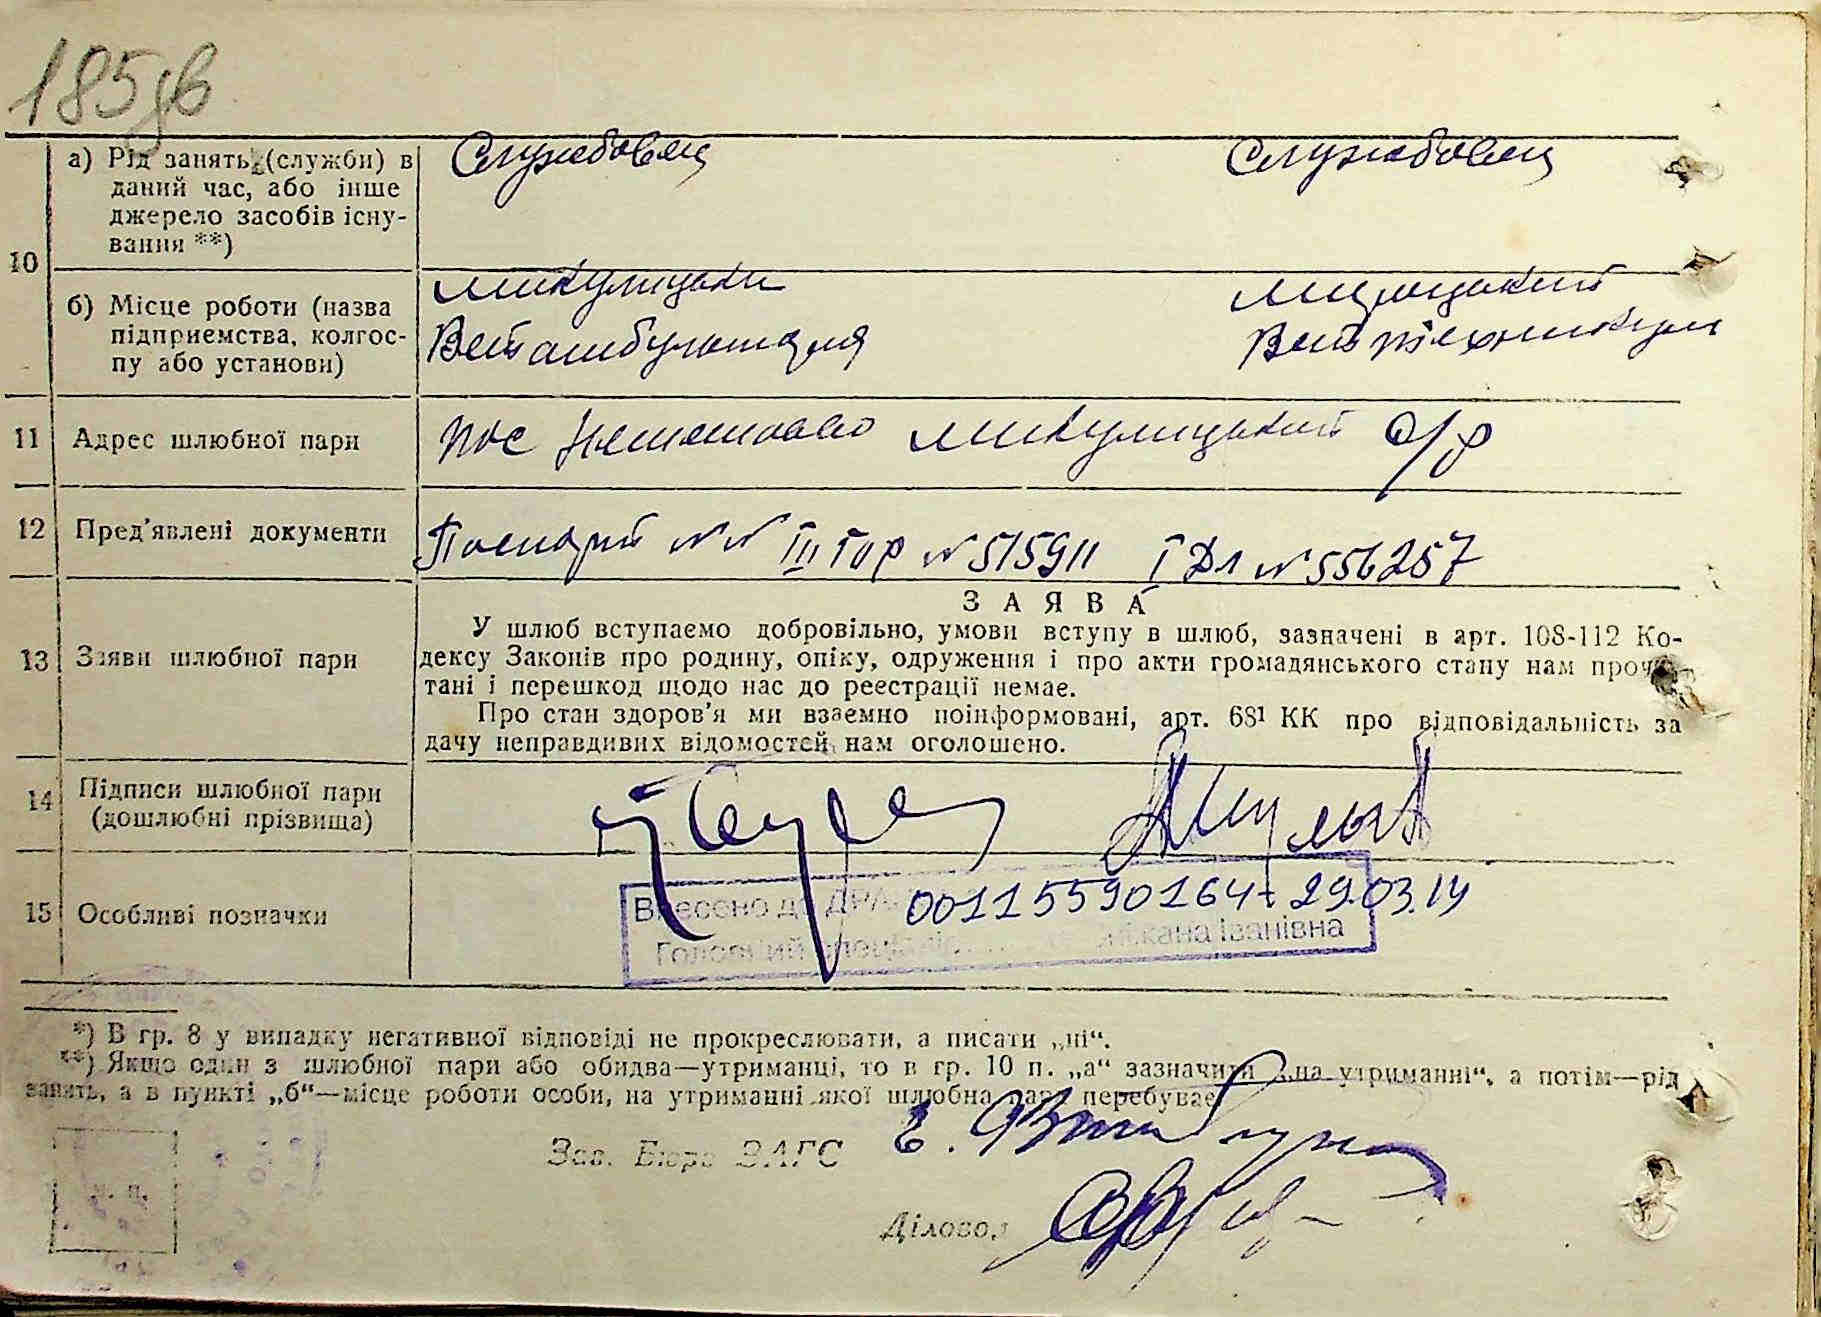 185зв
а) Рід занять (служби) в Службовец Службовец
даний час, або інше
джерело засобів існу-
вання **)
10
б) Місце роботи (назва Микулицьки
підприємства, колгос- Ветамбулатория Веттехникум
пу або установи)
11 Адрес шлюбної пари пос Немешаево Микулицький с/р
12 Пред'явлені документи Паспорт №№ III ТОР №515911 I ДЛ №556257
З А Я В А
У шлюб вступаємо добровільно, умови вступу в шлюб, зазначені в арт. 108-112 Ко-
13 Заяви шлюбної пари дексу Законів про родину, опіку, одруження і про акти громадянського стану нам прочи-
тані і перешкод щодо нас до реєстрації немає.
Про стан здоров'я ми взаємно поінформовані, арт. 68¹ КК про відповідальність за
дачу неправдивих відомостей нам оголошено.
14 Підписи шлюбної пари
(дошлюбні прізвища)
15 Особливі позначки Внесено до ДРА 00115590164 29.03.14
Головний Іванівна
*) В гр. 8 у випадку негативної відповіді не прокреслювати, а писати „ні“.
**) Якщо один з шлюбної пари або обидва—утриманці, то в гр. 10 п. „а“ зазначити „на утриманні“, а потім—рід
занять, а в пункті „б“—місце роботи особи, на утриманні якої шлюбна пара перебуває
Зав. Бюро ЗАГС
м. п.
Діловод